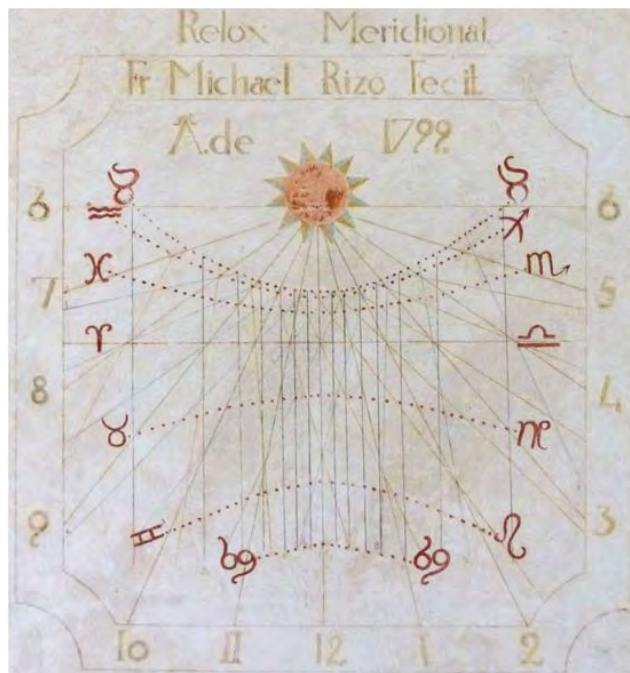 Relox Meridional
Fr Michael Rizo Fecit
A.de 1799.
♉ ♉
6 ♒ ♐ 6
♓ ♏
7 5
♈ ♎
8 4
♉ ♍
9 ♊ ♌ 3
69 69
10 11 12 1 2